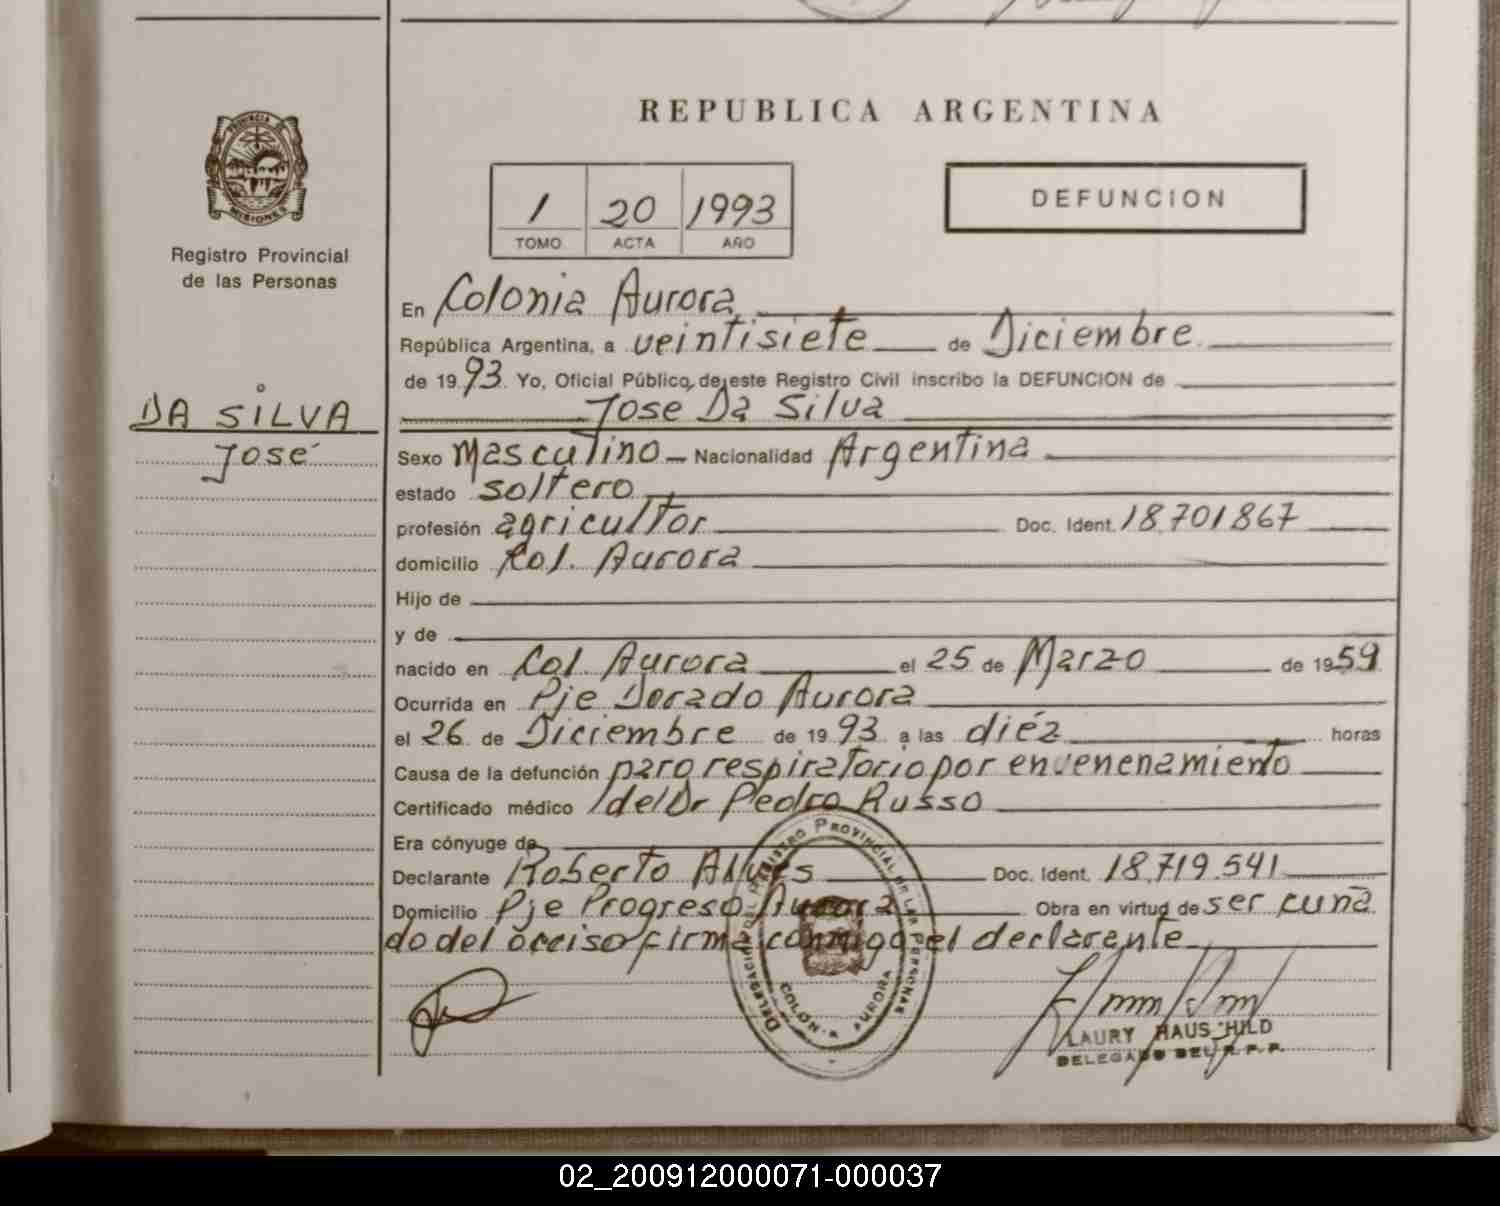 REPUBLICA ARGENTINA
PROVINCIA DE
MISIONES
Registro Provincial
de las Personas
1 20 1993
TOMO ACTA AÑO
DEFUNCION
En Colonia Aurora
República Argentina, a veintisiete de Diciembre
de 1993. Yo, Oficial Público, de este Registro Civil inscribo la DEFUNCION de
Jose Da Silva
DA SILVA
José
Sexo Masculino Nacionalidad Argentina
estado soltero
profesión agricultor Doc. Ident. 18.701867
domicilio Col. Aurora
Hijo de
y de
nacido en Col. Aurora el 25 de Marzo de 1959
Ocurrida en Pje Dorado Aurora
el 26 de Diciembre de 1993 a las diéz horas
Causa de la defunción paro respiratorio por envenenamiento
Certificado médico del Dr Pedro Russo
Era cónyuge de
Declarante Roberto Alves Doc. Ident. 18.719.541
Domicilio Pje Progreso Aurora Obra en virtud de ser cuña
do del occiso firma conmigo el declarante
DELEGACION DEL REGISTRO PROVINCIAL DE LAS PERSONAS
COLONIA AURORA
LAURY HAUSCHILD
DELEGADO DEL R.P.P.
02_200912000071-000037